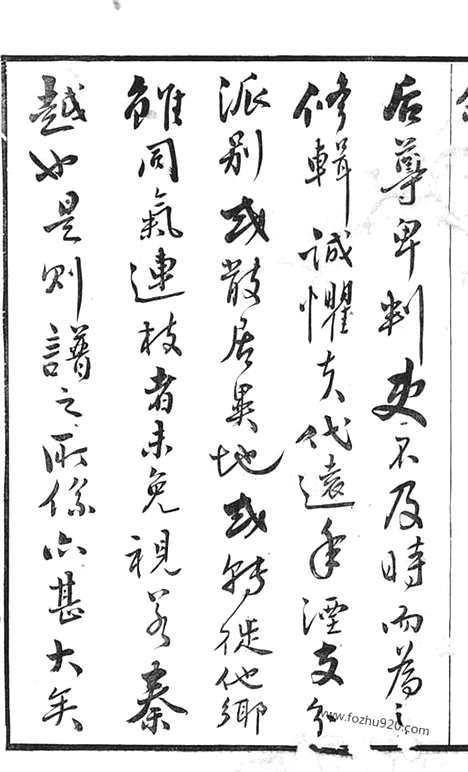 后尊卑判吏不及時而為之
修輯誠懼夫代遠年湮支分
派別或散居異地或轉徙他鄉
雖同氣連枝者未免視若秦
越也是則譜之所係亦甚大矣
www.fozhu920.com